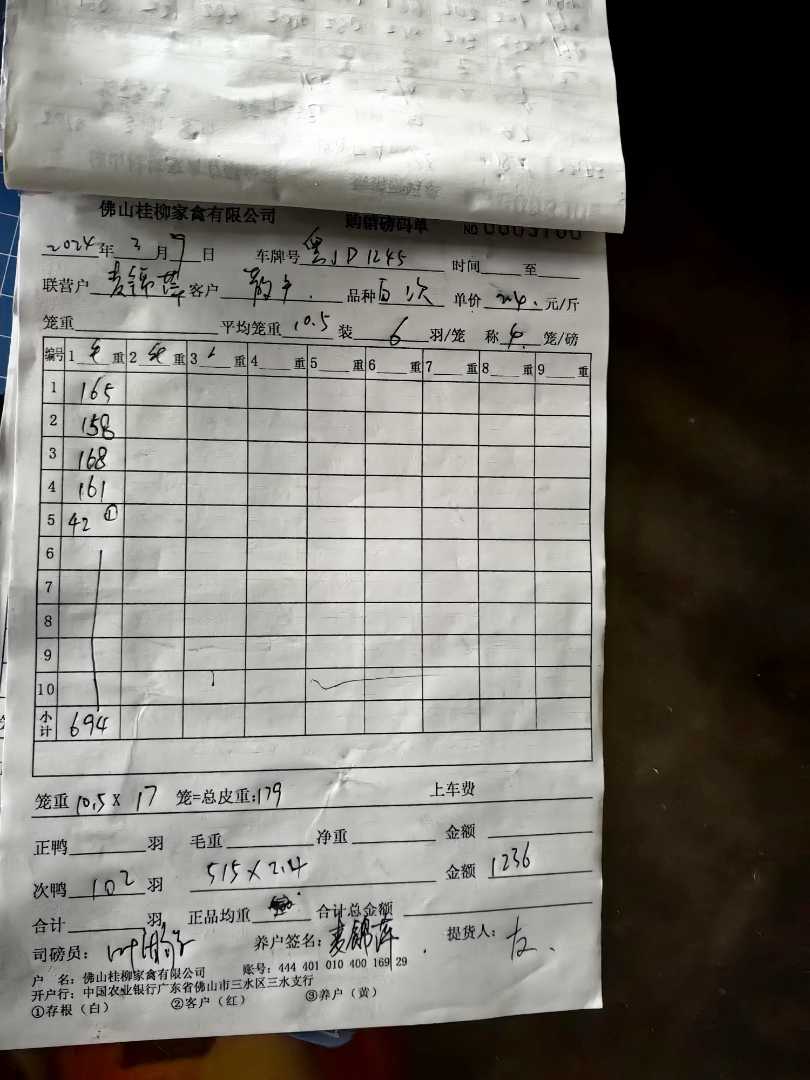 佛山桂柳家禽有限公司 购销磅码单 NO
2024年3月7日 车牌号 JD1245 时间 至
联营户 麦锦萍 客户 散户 品种 白次 单价 2.4 元/斤
笼重 平均笼重 10.5 装 6 羽/笼 称 4 笼/磅
编号 1 毛 重 2 重 3 重 4 重 5 重 6 重 7 重 8 重 9 重
1 165
2 158
3 168
4 161
5 42 ①
6
7
8
9
10
小计 694
笼重 10.5 X 17 笼=总皮重:179 上车费
正鸭 羽 毛重 净重 金额
次鸭 102 羽 515 X 2.4 金额 1236
合计 羽 正品均重 合计总金额
司磅员: 养户签名: 麦锦萍 提货人:
户 名: 佛山桂柳家禽有限公司 账号: 444 401 010 400 169 29
开户行: 中国农业银行广东省佛山市三水区三水支行
①存根（白） ②客户（红） ③养户（黄）